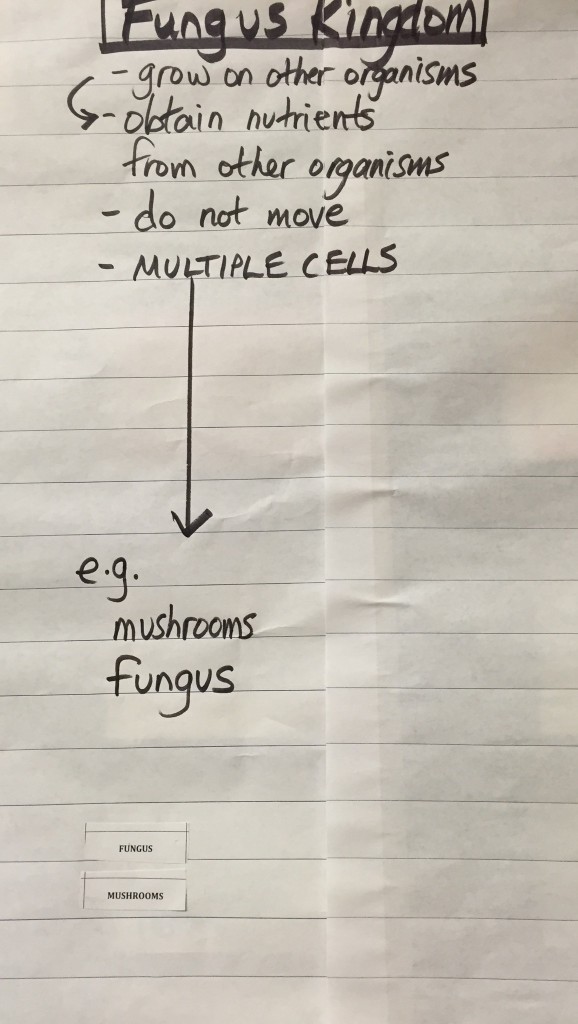 Fungus Kingdom
- grow on other organisms
- obtain nutrients
from other organisms
- do not move
- MULTIPLE CELLS
e.g.
mushrooms
fungus
FUNGUS
MUSHROOMS